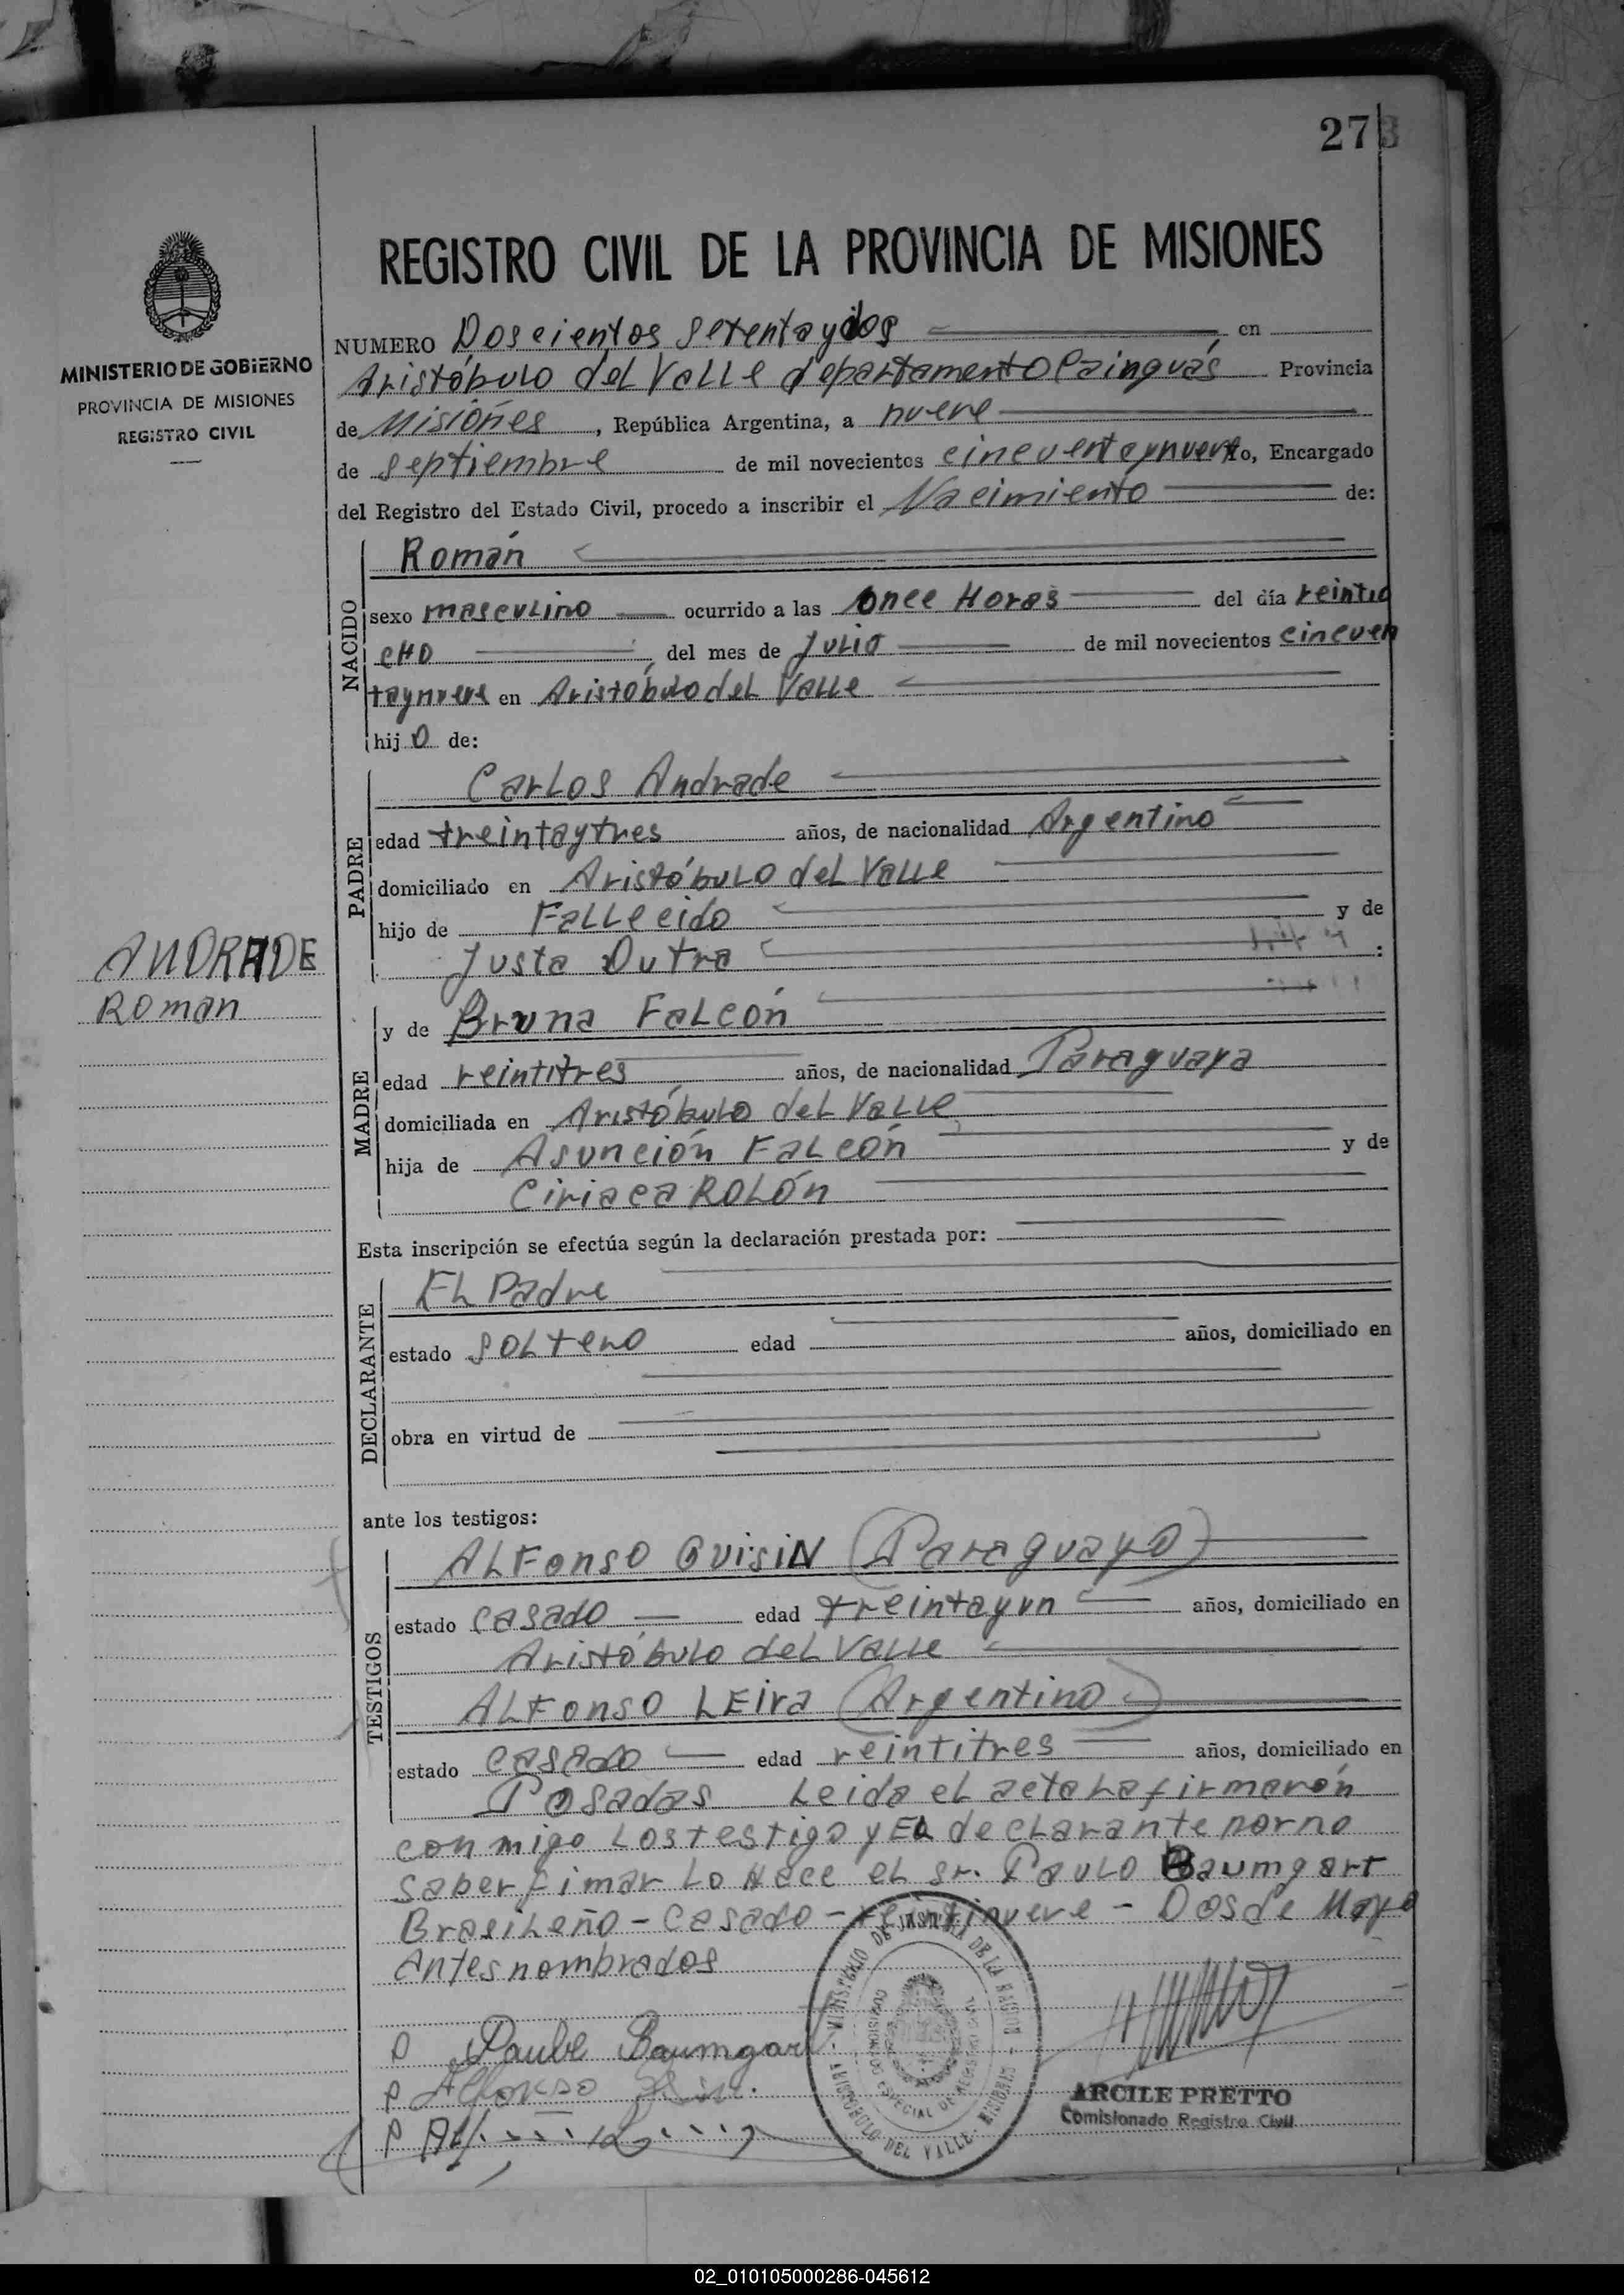 273
REGISTRO CIVIL DE LA PROVINCIA DE MISIONES
MINISTERIO DE GOBIERNO
PROVINCIA DE MISIONES
REGISTRO CIVIL
NUMERO Doscientos setentaydos en
Aristóbulo del Valle departamento Cainguás Provincia
de Misiones, República Argentina, a nueve
de septiembre de mil novecientos cincuentaynueve yo, Encargado
del Registro del Estado Civil, procedo a inscribir el Nacimiento de:
NACIDO
Román
sexo masculino ocurrido a las once Horas del día veintio
cHo del mes de Julio de mil novecientos cincuen
taynueve en Aristóbulo del Valle
hijo de:
PADRE
Carlos Andrade
edad treintaytres años, de nacionalidad Argentino
domiciliado en Aristóbulo del Valle
hijo de Fallecido y de
Justa Dutra :
ANDRADE
Roman
MADRE
y de Bruna Falcón
edad veintitres años, de nacionalidad Paraguaya
domiciliada en Aristóbulo del Valle
hija de Asunción Falcón y de
Ciriaca Rolón
Esta inscripción se efectúa según la declaración prestada por:
DECLARANTE
El Padre
estado soltero edad años, domiciliado en
obra en virtud de
ante los testigos:
TESTIGOS
Alfonso Guisin (Paraguayo)
estado casado edad treintayun años, domiciliado en
Aristóbulo del Valle
Alfonso Leiva (Argentino)
estado casado edad veintitres años, domiciliado en
Posadas Leida el acta la firmarón
con migo los testigo y El declarante por no
saber fimar lo Hace el sr. Paulo Baumgart
Brasileño - casado - veintinueve - Dos de Mayo
Antes nombrados
P Baumgart
P Alfonso
P
MINISTERIO DE JUSTICIA DE LA NACION
COMISIONADO ESPECIAL DE REGISTRO CIVIL
ARISTOBULO DEL VALLE - MISIONES
ARCILE PRETTO
Comisionado Registro Civil
02_010105000286-045612